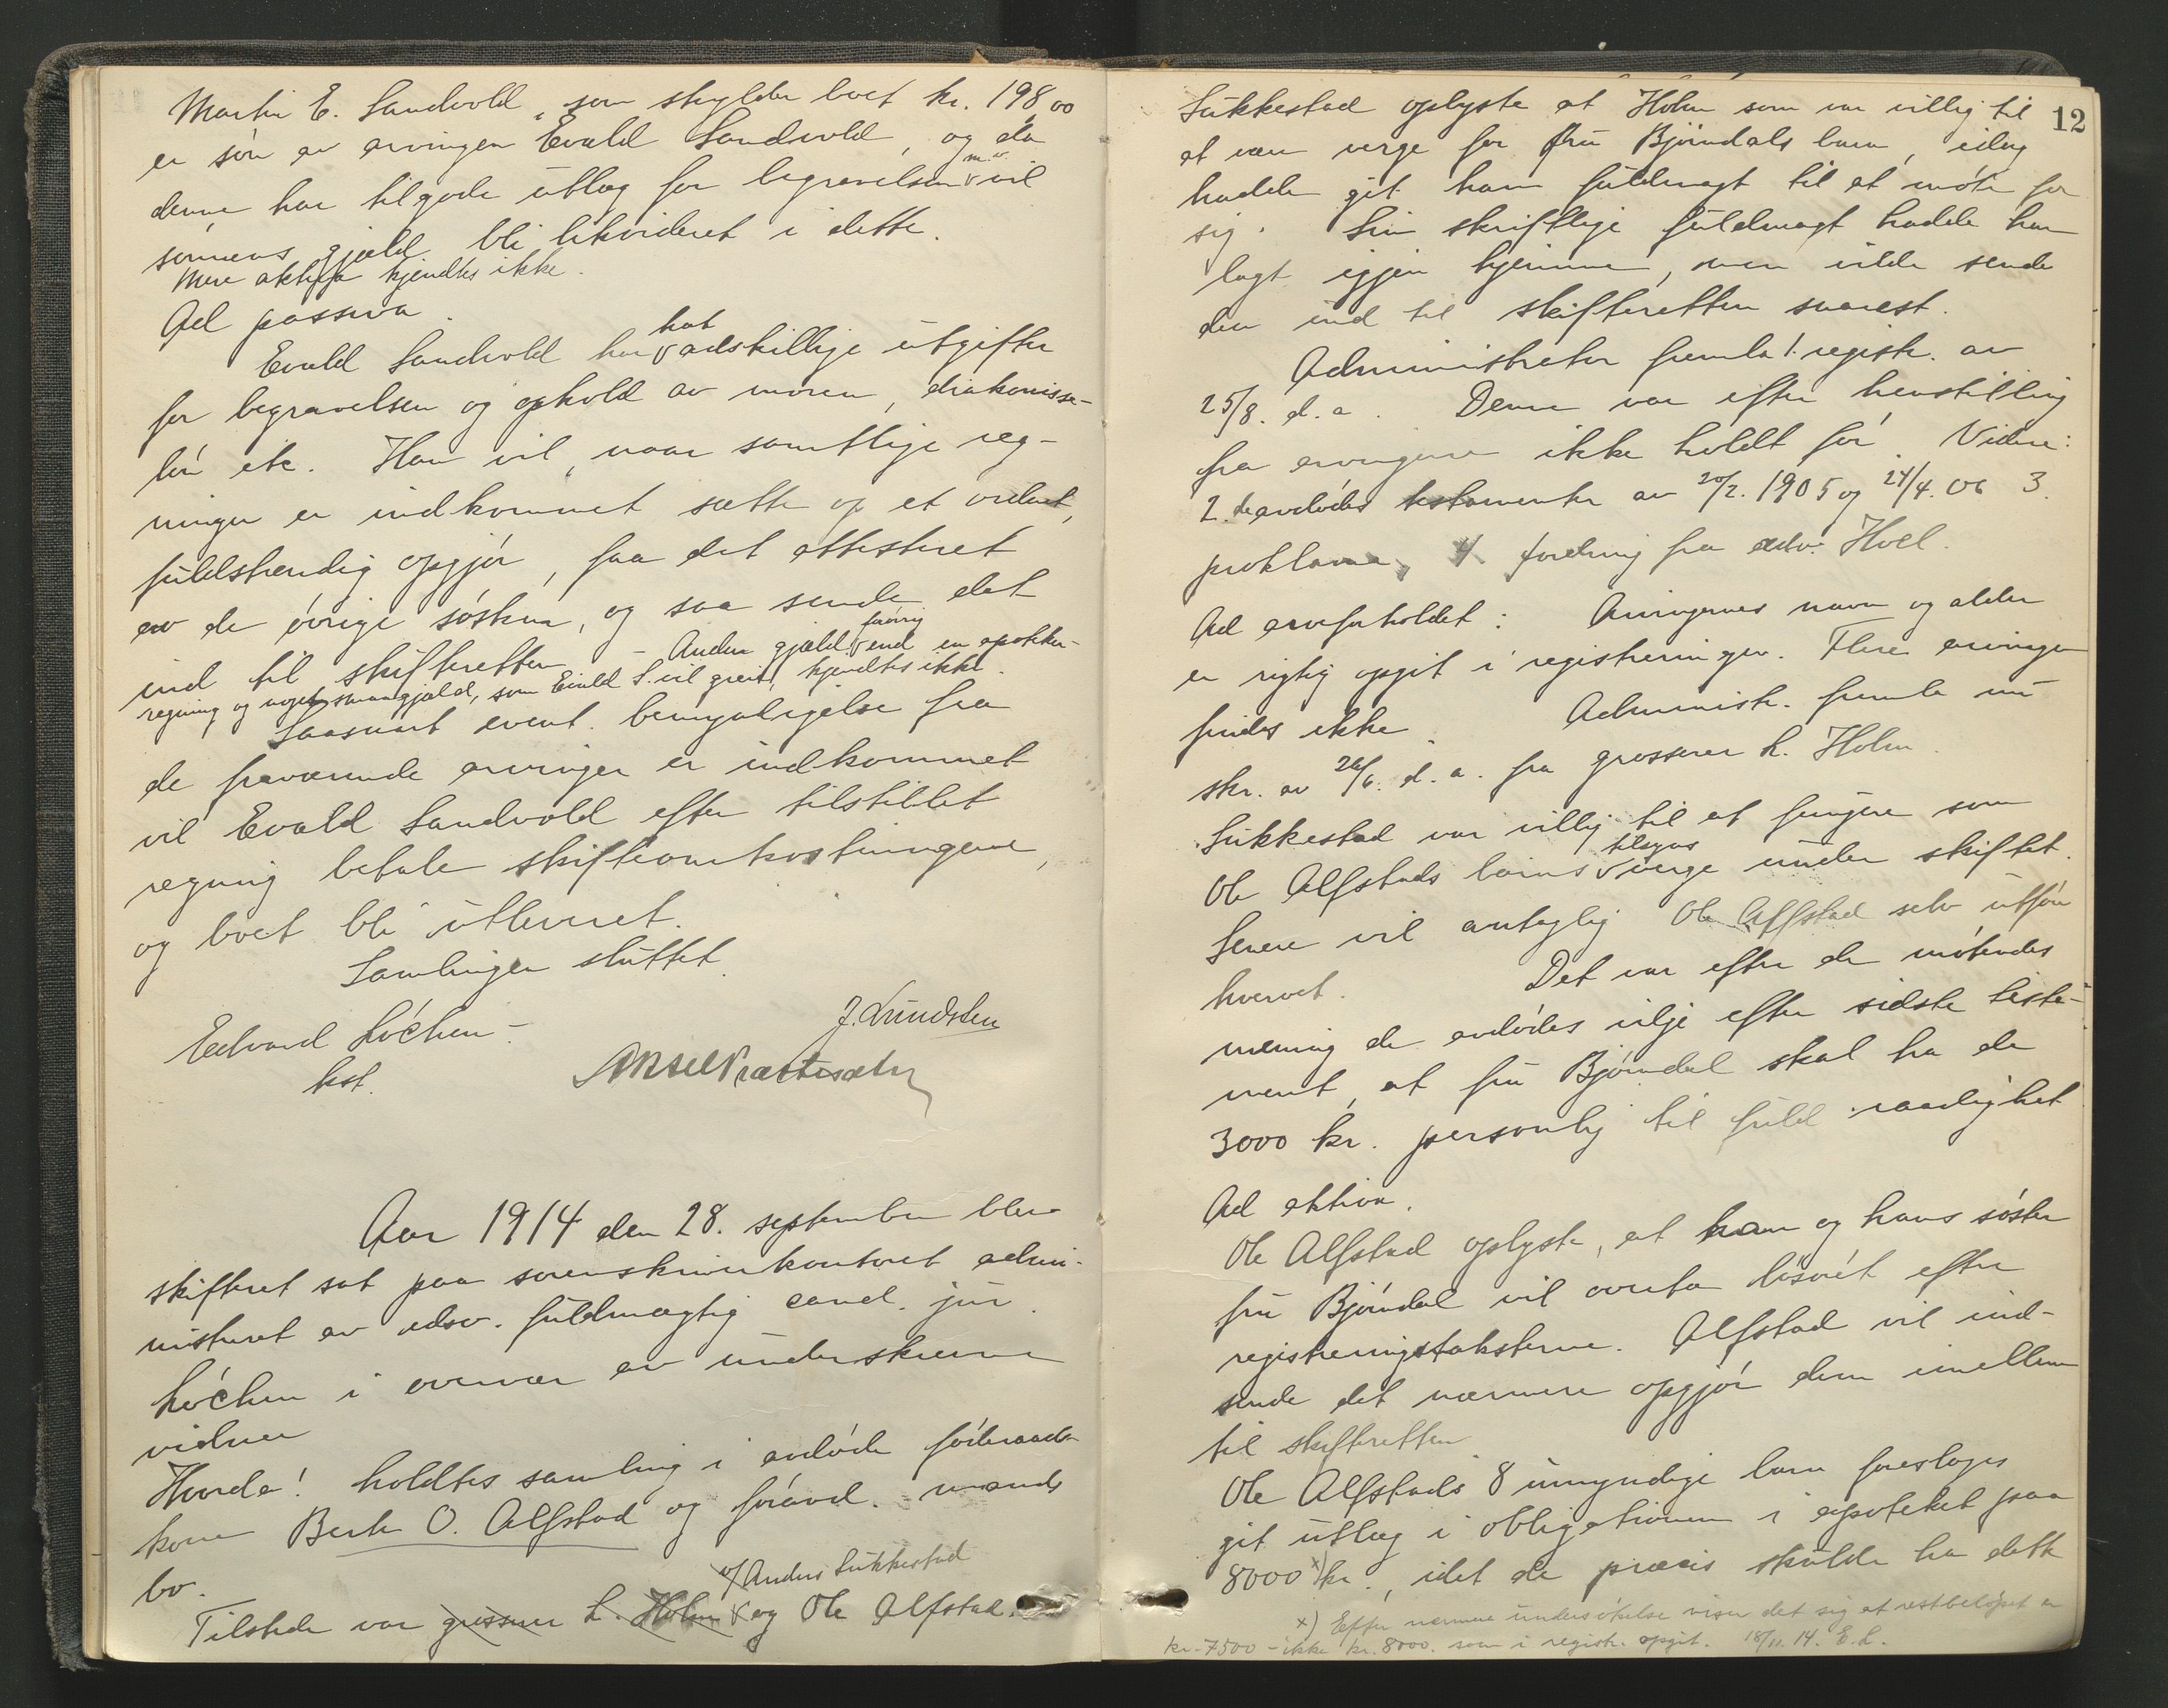 Martin E. Sandvold, som skylder boet kr. 198,00
er søn av arvingen Evald Sandvold, og da
denne har tilgode utlæg for begravelsen m.v. vil
sønnens gjæld bli likvideret i dette.
Mere aktiva kjendtes ikke.
Ad passiva.
Evald Sandvold har hat adskillige utgifter
for begravelsen og ophold av moren, diakonisse-
løn etc. Han vil, naar samtlige reg-
ninger er indkommet sætte op et ordnet,
fuldstendig opgjør, faa det attesteret
av de øvrige søsken, og saa sende det
ind til skifteretten. - Anden gjæld forøvrig end en apotheker-
regning og noget smaagjæld, som Evald S. vil greie, kjendtes ikke.
Saasnart event. bemyndigelse fra
de fraværende arvinger er indkommet
vil Evald Sandvold efter tilstillet
regning betale skifteomkostningerne,
og boet bli utleveret.
Samlingen sluttet.
Edvard Løchen
kst.
J. Lundsten
Aar 1914 den 28. september blev
skifteret sat paa sorenskriverkontoret admi-
nistreret av edsv. fuldmægtig cand. jur.
Løchen i overvær av underskrevne
vidner
Hvorda! holdtes samling i avdøde føderaads-
kone Berte O. Alfstad og foravd. mands
bo.
Tilstede var grosserer L. Holm v/ Anders Sukkestad og Ole Alfstad.
12
Sukkestad oplyste at Holm som var villig til
at være verge for fru Bjørndals barn, idag
hadde git ham fuldmagt til at møte for
sig. Sin skriftlige fuldmagt hadde han
lagt igjen hjemme, men vilde sende
den ind til skifteretten snarest.
Administrator fremla 1. registr. av
25/8. d.a. Denne var efter henstilling
fra arvingerne ikke holdt før. Videre:
2. de avdødes testamenter av 20/2. 1905 og 24/4. 06 3.
proklama, 4 fordring fra adv. Hoel.
Ad arveforholdet: Arvingernes navn og alder
er rigtig opgit i registreringen. Flere arvinger
findes ikke. Administr. fremla nu
skr. av 26/6. d.a. fra grosserer L. Holm.
Sukkestad var villig til at fungere som
Ole Alfstads barns tilsyns verge under skiftet.
Senere vil antaglig Ole Alfstad selv utføre
hvervet. Det var efter de møtendes
mening de avdødes vilje efter sidste testa-
ment, at fru Bjørndal skal ha de
3000 kr. personlig til fuld raadighet
Ad aktiva.
Ole Alfstad oplyste, at han og hans søster
fru Bjørndal vil overta løsøret efter
registreringstaksterne. Alfstad vil ind-
sende det nærmere opgjør dem imellem
til skifteretten
Ole Alfstads 8 umyndige barn foreslages
git utlæg i obligationen i apoteket paa
8000 x) kr., idet de præcis skulde ha dette
x) Efter nærmere undersøkelse viser det sig at restbeløpet er
kr. 7500 - ikke kr. 8000. som i registr. opgit. 18/11. 14. E.L.